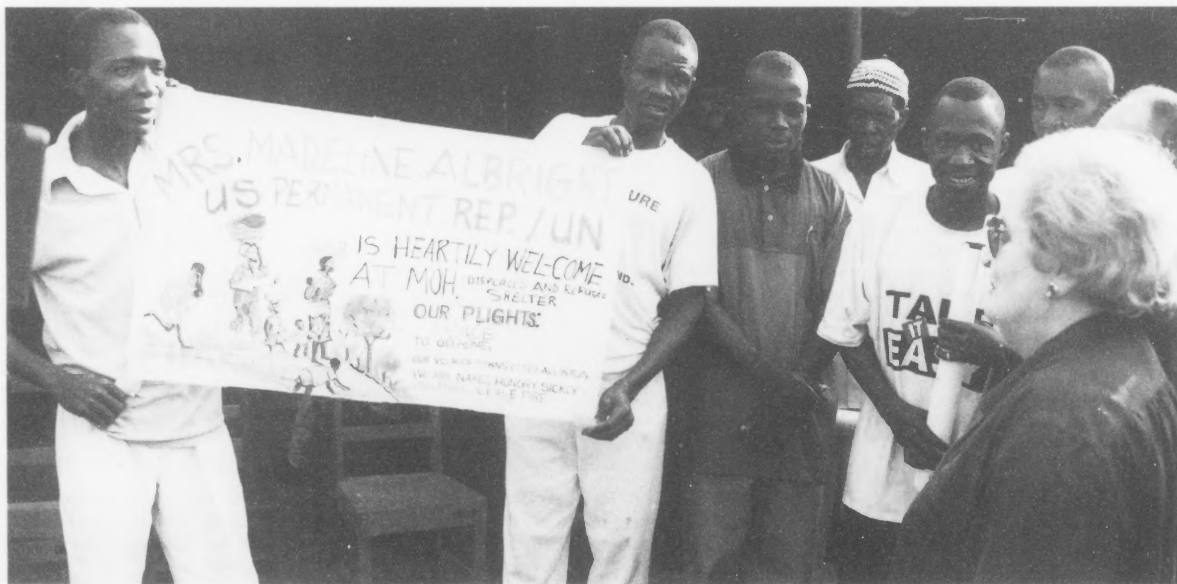 MRS. MADELINE ALBRIGHT
US PERMANENT REP./UN
IS HEARTILY WEL-COME
AT MOH. DISPLACED AND REFUGEE
SHELTER
OUR PLIGHTS:
TO GO HOME,
WE ARE NAKED, HUNGRY, SICKLY
URE
ND.
TAK
IT
EA